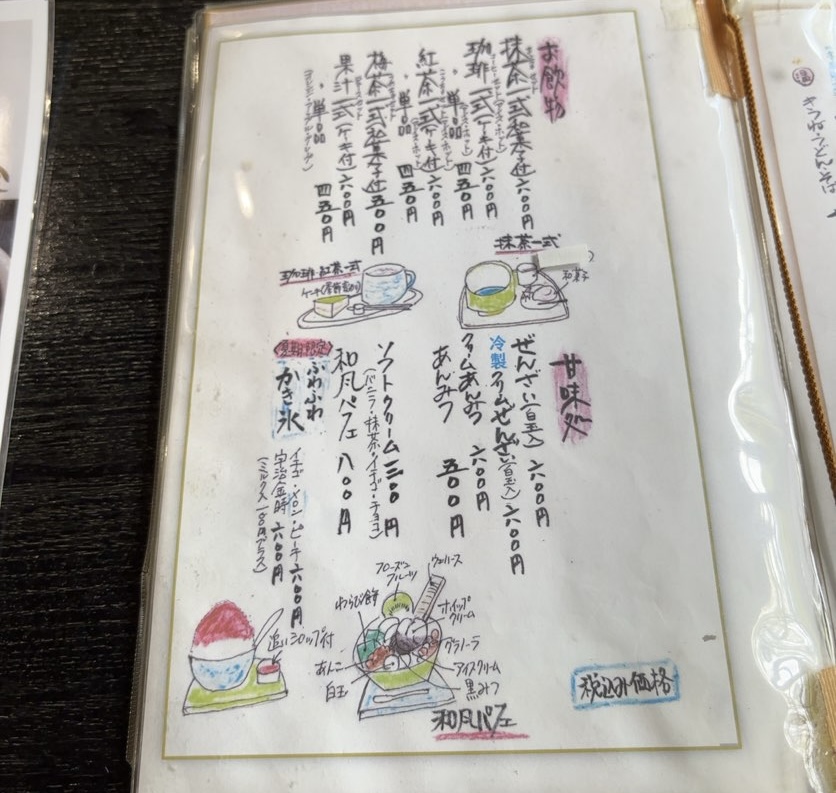 お飲物
抹茶一式(和菓子付)六〇〇円
珈琲一式(ケーキ付)六〇〇円
、単品 四五〇円
紅茶一式(ケーキ付)六〇〇円
、単品 四五〇円
梅茶一式(和菓子付)五〇〇円
果汁一式(ケーキ付)六〇〇円
、単品 四五〇円
抹茶一式
和菓子
珈琲・紅茶一式
甘味処
ぜんざい(白玉入)六〇〇円
冷製クリームぜんざい(白玉入)六〇〇円
クリームあんみつ 六〇〇円
あんみつ 五〇〇円
ソフトクリーム 三〇〇円
(バニラ・抹茶・イチゴ・チョコ)
和風パフェ 八〇〇円
夏期限定
ふわふわ
かき氷
イチゴ・メロン・ピーチ 六〇〇円
宇治金時 六〇〇円
(ミルク 一〇〇円プラス)
追いシロップ付
フローズン
フルーツ
ウエハース
わらび餅
ホイップ
クリーム
グラノーラ
あんこ
アイスクリーム
白玉
黒みつ
和風パフェ
税込み価格
きつねうどん・そば